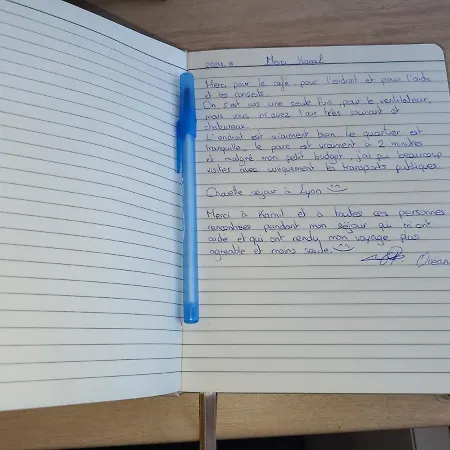 2024.8 Merci Kamil
Merci pour le café, pour l'endroit et pour l'aide
et les conseils.
On s'est vus une seule fois, pour le ventilateur,
mais vous m'avez l'air très souriant et
chaleureux.
L'endroit est vraiment bien, le quartier est
tranquille, le parc est vraiment à 2 minutes
et malgré mon petit budget, j'ai pu beaucoup
visiter avec uniquement les transports publiques.
Chouette séjour à Lyon
Merci à Kamil et à toutes ces personnes
rencontrées pendant mon séjour qui m'ont
aidé et qui ont rendu mon voyage plus
agréable et moins seule.
Océan